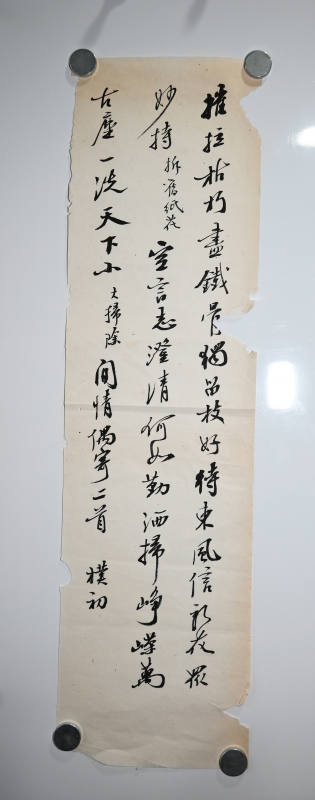 摧拉枯朽盡鐵骨獨留枝好待東風信新花眾
妙持拆舊紙花空言志澄清何如勤洒掃崢嶸萬
古塵一洗天下小大掃除閒情偶寄二首樸初